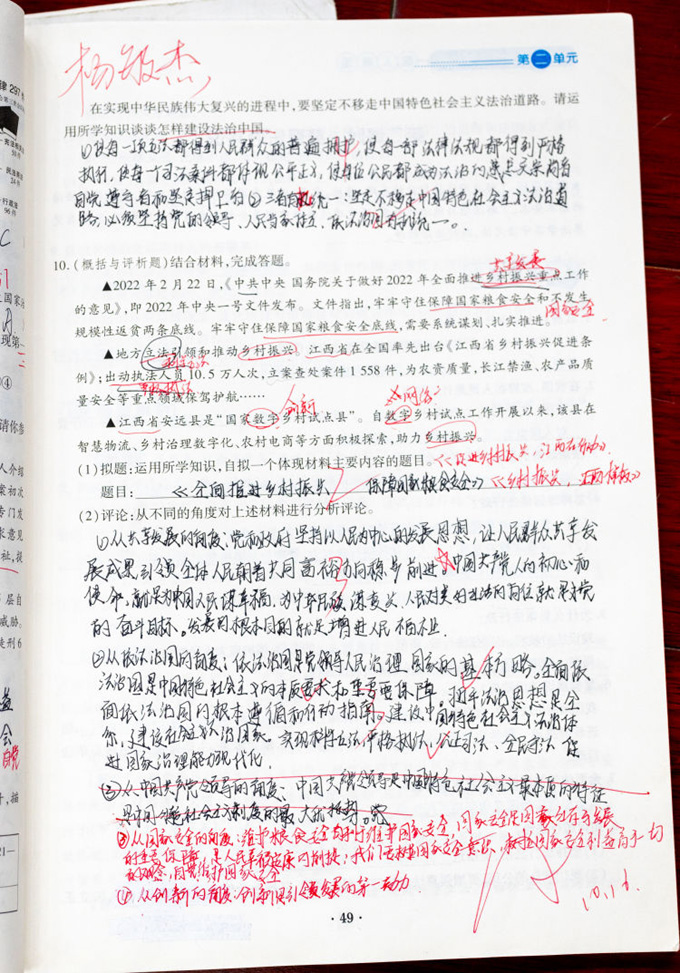 杨敏杰
第二单元
在实现中华民族伟大复兴的进程中，要坚定不移走中国特色社会主义法治道路。请运
用所学知识谈谈怎样建设法治中国。
①使每一项立法都得到人民群众的普遍拥护，使每一部法律法规都得到严格
执行，使每一个司法案件都体现公平正义，使每位公民都成为法治的忠实崇尚者
自觉遵守者和坚定捍卫者 ②三者有机统一：坚定不移走中国特色社会主义法治道
路，必须坚持党的领导、人民当家作主、依法治国有机统一。
10.（概括与评析题）结合材料，完成答题。
共享发展
▲2022 年 2 月 22 日，《中共中央 国务院关于做好 2022 年全面推进乡村振兴重点工作
的意见》，即 2022 年中央一号文件发布。文件指出，牢牢守住保障国家粮食安全和不发生
国家安全
规模性返贫两条底线。牢牢守住保障国家粮食安全底线，需要系统谋划、扎实推进。
▲地方立法引领和推动乡村振兴。江西省在全国率先出台《江西省乡村振兴促进条
例》；出动执法人员 10.5 万人次，立案查处案件 1 558 件，为农资质量，长江禁渔、农产品质
量安全等重点领域保驾护航……
创新
网络
▲江西省安远县是“国家数字乡村试点县”。自数字乡村试点工作开展以来，该县在
智慧物流、乡村治理数字化、农村电商等方面积极探索，助力乡村振兴。
(1)拟题：运用所学知识，自拟一个体现材料主要内容的题目。《促进乡村振兴，江西在行动》
题目：《全面推进乡村振兴 保障国家粮食安全》《乡村振兴，江西样板》
(2)评论：从不同的角度对上述材料进行分析评论。
①从共享发展的角度：党和政府坚持以人民为中心的发展思想，让人民群众共享发
展成果，引领全体人民朝着共同富裕方向稳步前进。中国共产党人的初心和
使命，就是为中国人民谋幸福，为中华民族谋复兴，人民对美好生活的向往就是党
的奋斗目标。发展的根本目的就是增进人民福祉。
②从依法治国的角度：依法治国是党领导人民治理国家的基本方略。全面依
法治国是中国特色社会主义的本质要求和重要保障。习近平法治思想是全
面依法治国的根本遵循和行动指南。建设中国特色社会主义法治体
系，建设社会主义法治国家。实现科学立法、严格执法、公正司法、全民守法，促
进国家治理能力现代化。
③从中国共产党领导的角度：中国共产党领导是中国特色社会主义最本质的特征
是中国特色社会主义制度的最大的优势。党
③从国家安全的角度：维护粮食安全有利于维护国家安全，国家安全是国家生存与发展
的重要保障，是人民幸福安康的前提；我们要树立国家安全意识，树立国家安全利益高于一切
的观念，自觉维护国家安全
④从创新的角度：创新是引领发展的第一动力
10.11.
·49·